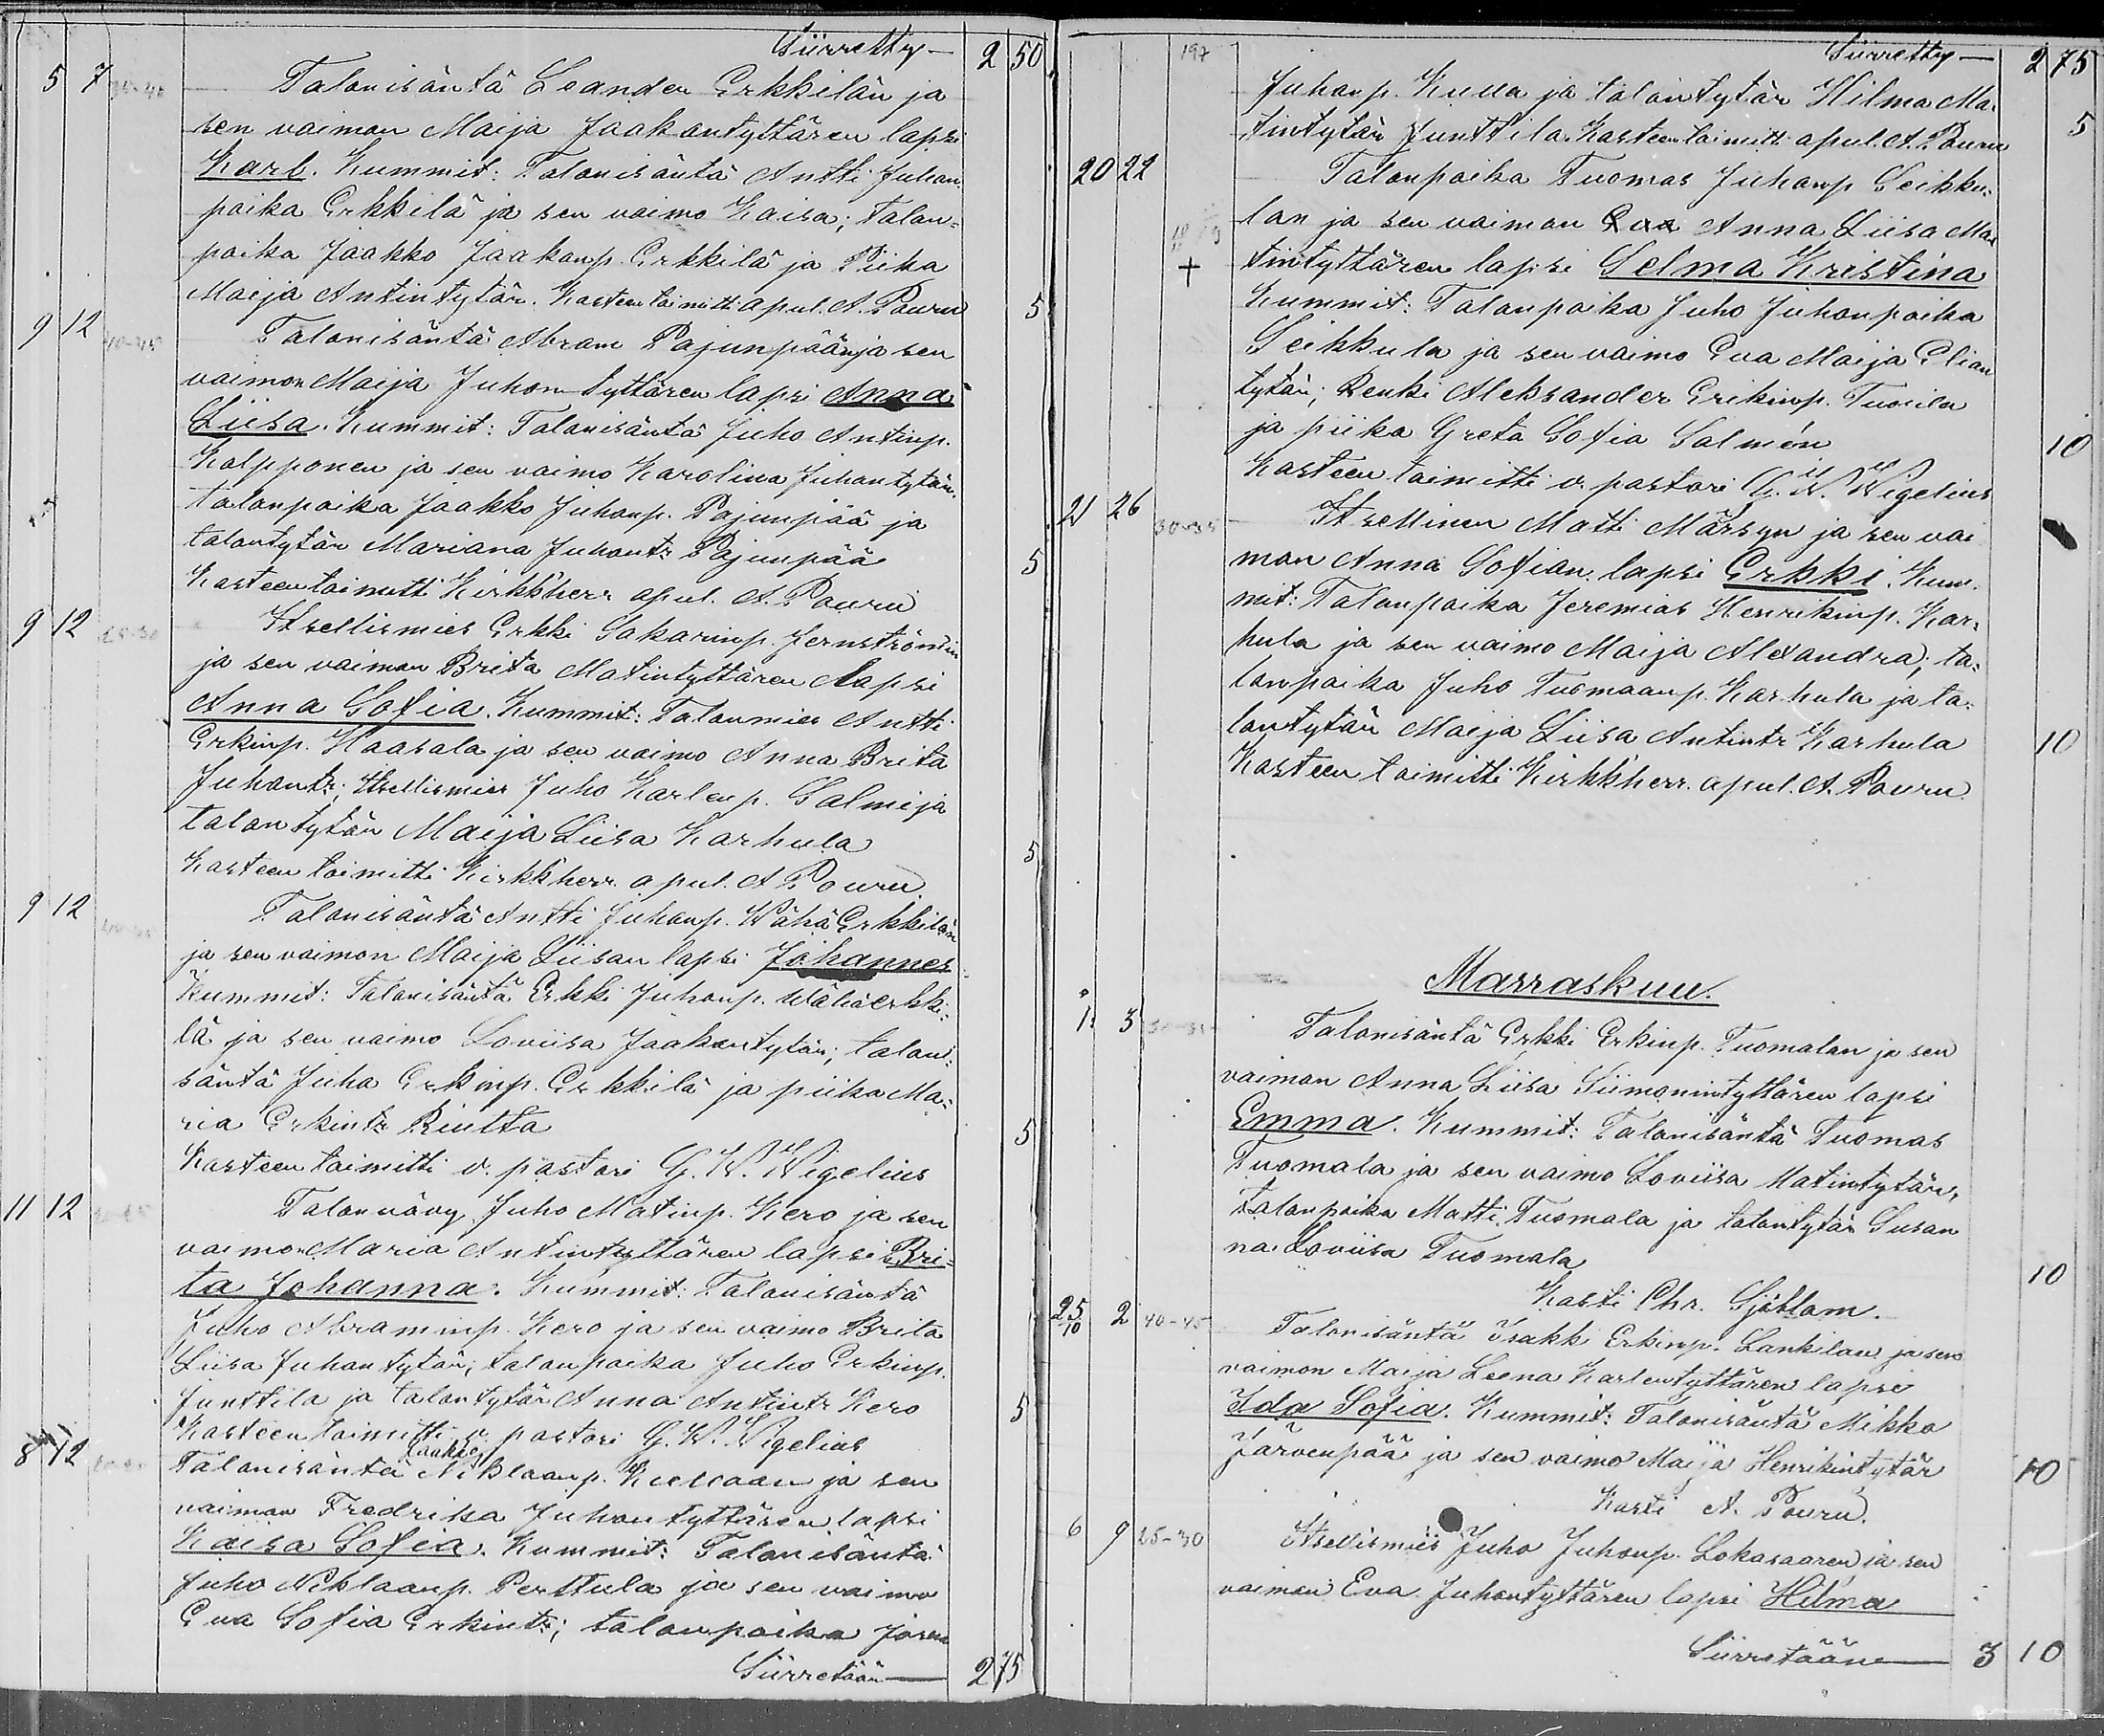 Siirretty — 2 50
5 7 Talonisäntä Leander Erkkilän ja
sen vaimon Maija Jaakontyttären lapsi
Karl. Kummit: Talonisäntä Antti Juhan
poika Erkkilä ja sen vaimo Kaisa; talon=
poika Jaakko Jaakonp. Erkkilä ja Piika
Maija Antintytär. Kasteen toimitti apul. A. Pouru 5
9 12 40-45 Talonisäntä Abram Pajunpään ja sen
vaimon Maija Juhontyttären lapsi Anna
Liisa. Kummit: Talonisäntä Juho Antinp.
Kalpponen ja sen vaimo Karolina Juhontytär,
talonpoika Jaakko Juhonp. Pajunpää ja
talontytär Mariana Juhontr Pajunpää 5
Kasteen toimitti Kirkkherr apul. A. Pouru
9 12 25-30 Itsellismies Erkki Sakarinp. Jernströmin
ja sen vaimon Brita Matintyttären lapsi
Anna Sofia. Kummit: Talonmies Antti
Erkinp. Haasala ja sen vaimo Anna Brita
Juhontr; Itsellismies Juho Karlenp. Salmi ja
talontytär Maija Liisa Karhula 5
Kasteen toimitti Kirkkherr apul. A Pouru.
9 12 Talonisäntä Antti Juhonp. Wähä Erkkilän
ja sen vaimon Maija Liisan lapsi Johannes
Kummit: Talonisäntä Erkki Juhonp. Wähäerkki=
lä ja sen vaimo Loviisa Jaakontytär; taloni=
säntä Juha Erkinp. Erkkilä ja piika Ma=
ria Erkintr Rintta 5
Kasteen toimitti v. pastori G. W. Wigelius
11 12 Talonvävy Juho Matinp. Kero ja sen
vaimon Maria Antintyttären lapsi Bri=
ta Johanna. Kummit: Talonisäntä
Juho Abraminp. Kero ja sen vaimo Brita
Liisa Juhontytär; talonpoika Juho Erkinp.
Junttila ja talontytär Anna Antintr Kero 5
Kasteen toimitti v. pastori G. W. Wigelius
Jaakko
8 12 Talonisäntä Niklaanp. Kuuaan ja sen
vaimon Fredrika Juhontyttären lapsi
Kaisa Sofia. Kummit: Talonisäntä
Juho Niklaanp. Perttula ja sen vaimo
Eva Sofia Erkintr; talonpoika
Siirretään — 2 75
197 Siirretty — 2 75
Juhanp. Kuua ja talontytär Hilma Ma=
tintytär Junttila. Kasteen toimitti apul. A. Pouru 5
20 22 Talonpoika Tuomas Juhanp Seikku=
lan ja sen vaimon Anna Liisa Ma
+ tintyttären lapsi Selma Kristina
Kummit: Talonpoika Juho Juhonpoika
Seikkula ja sen vaimo Eva Maija Elian
tytär; Renki Aleksander Erikinp. Tuorila
ja piika Greta Sofia Salmén 10
Kasteen toimitti v. pastori G. W. Wigelius
21 26 30-35 Itsellinen Matti Märsyn ja sen vai
mon Anna Sofian lapsi Erkki. Kum=
mit: Talonpoika Jeremias Henrikinp. Kar=
hula ja sen vaimo Maija Alexandra; ta=
lonpoika Juho Tuomaanp. Karhula ja ta=
lontytär Maija Liisa Antintr Karhula 10
Kasteen toimitti Kirkkherr. apul. A. Pouru.
Marraskuu.
1 3 Talonisäntä Erkki Erkinp. Tuomalan ja sen
vaimon Anna Liisa Siimonintyttären lapsi
Emma. Kummit: Talonisäntä Tuomas
Tuomala ja sen vaimo Loviisa Matintytär,
Talonpoika Matti Tuomala ja talontytär Susan
na Loviisa Tuomala 10
Kasti Chr. Sjöblom.
25/10 2 40-45 Talonisäntä Isakk Erkinp. Lankilan ja sen
vaimon Maija Leena Karlentyttären lapsi
Ida Sofia. Kummit: Talonisäntä Mikko
Järvenpää ja sen vaimo Maija Henrikintytär 10
Kasti A. Pouru.
6 9 25-30 Itsellismies Juho Juhonp. Lokasaaren ja sen
vaimon Eva Juhontyttären lapsi Hilma
Siirretään — 3 10